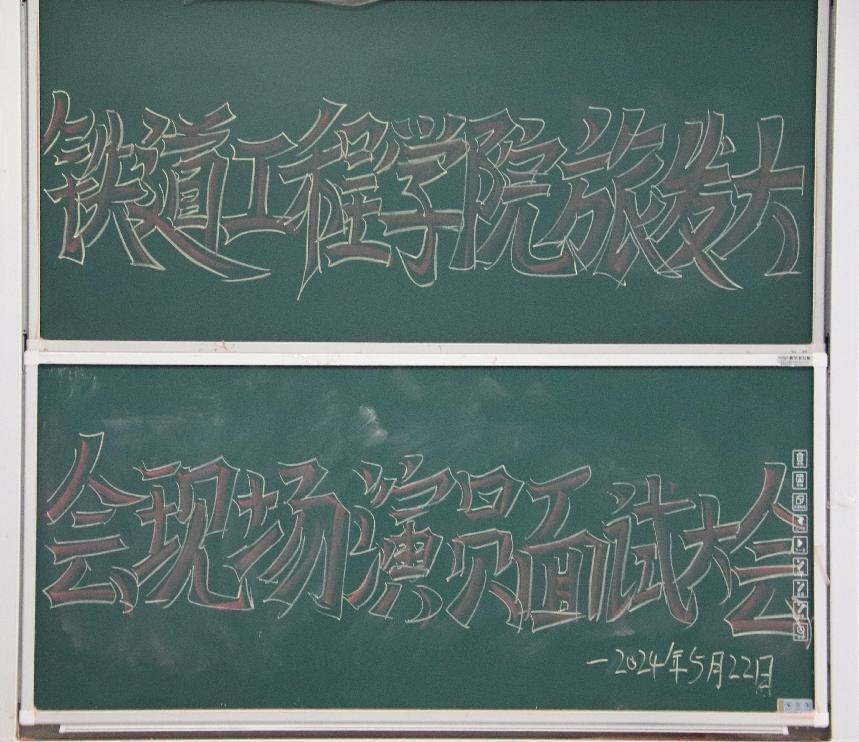 铁道工程学院旅发大
会现场演员面试大会
一2024年5月22日